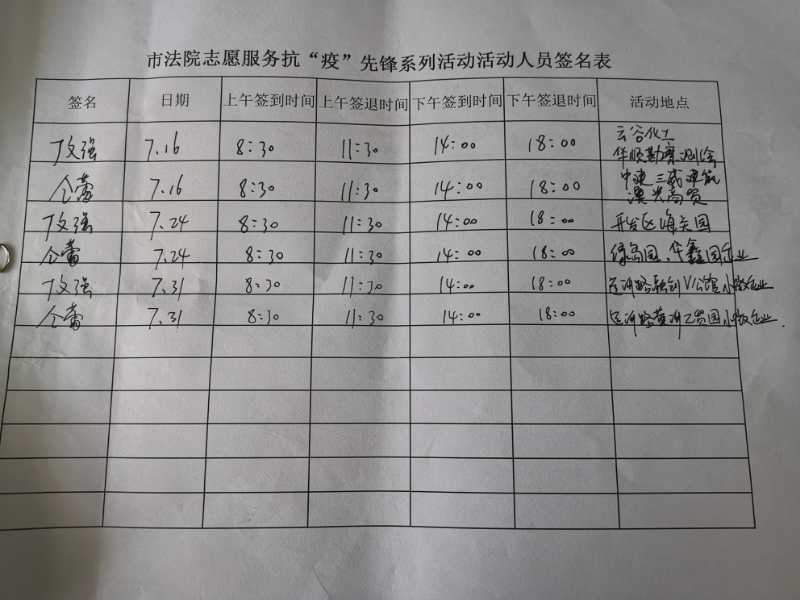 市法院志愿服务抗“疫”先锋系列活动活动人员签名表
签名 日期 上午签到时间 上午签退时间 下午签到时间 下午签退时间 活动地点
强 7.16 8:30 11:30 14:00 18:00 云谷化工
华顺勘察测绘
仝蕾 7.16 8:30 11:30 14:00 18:00 中建三武建筑
澳兴商贸
强 7.24 8:30 11:30 14:00 18:00 开发区海关园
仝蕾 7.24 8:30 11:30 14:00 18:00 绿岛园、华鑫园企业
强 7.31 8:30 11:30 14:00 18:00 运河路融创V公馆小微企业
仝蕾 7.31 8:30 11:30 14:00 18:00 运河路黄河工贸园小微企业.